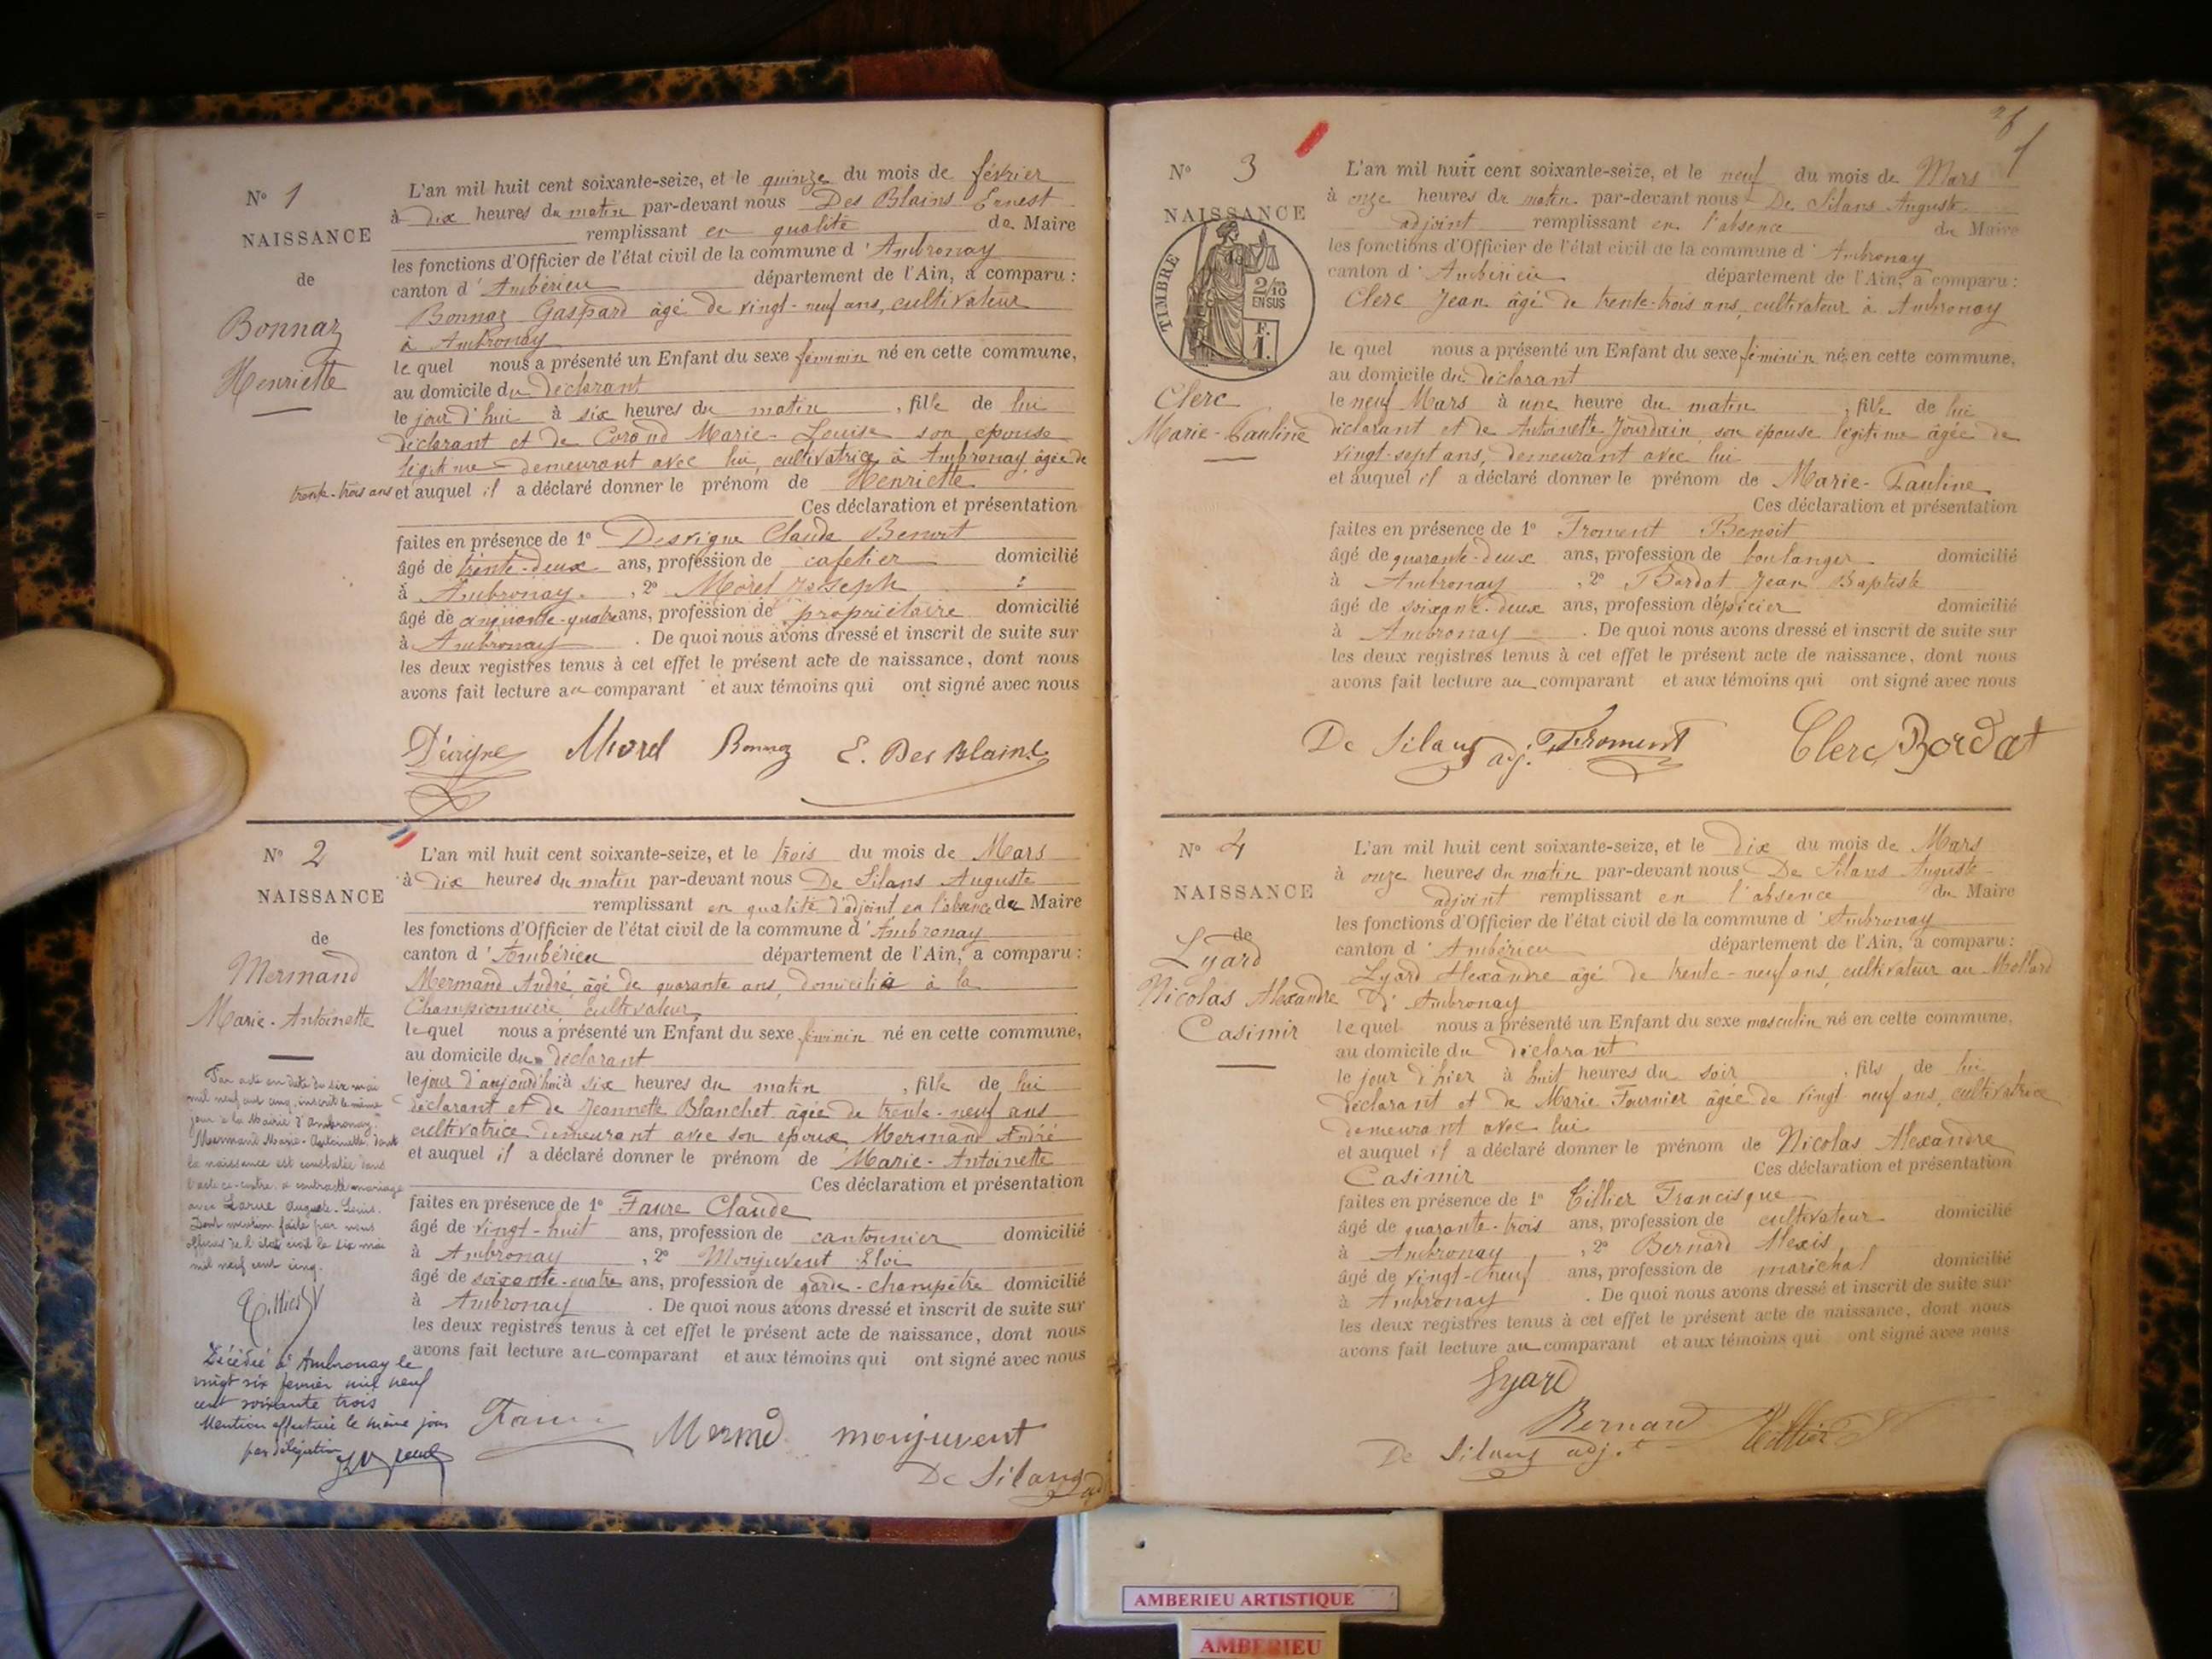 N° 1
NAISSANCE
de
Bonnaz
Henriette
L'an mil huit cent soixante-seize, et le quinze du mois de février
à dix heures du matin par-devant nous Des Blains Ernest
remplissant en qualité de Maire
les fonctions d'Officier de l'état civil de la commune d'Ambronay
canton d'Ambérieu département de l'Ain, a comparu :
Bonnaz Gaspard âgé de vingt-neuf ans, cultivateur
à Ambronay
lequel nous a présenté un Enfant du sexe féminin né en cette commune,
au domicile du déclarant
le jour d'hui à six heures du matin, fille de lui
déclarant et de Corand Marie-Louise son épouse
légitime demeurant avec lui, cultivatrice à Ambronay âgée de
trente-trois ans et auquel il a déclaré donner le prénom de Henriette
Ces déclaration et présentation
faites en présence de 1° Desvigne Claude Benoit
âgé de trente-deux ans, profession de cafetier domicilié
à Ambronay, 2° Morel Joseph
âgé de cinquante-quatre ans, profession de propriétaire domicilié
à Ambronay. De quoi nous avons dressé et inscrit de suite sur
les deux registres tenus à cet effet le présent acte de naissance, dont nous
avons fait lecture au comparant et aux témoins qui ont signé avec nous
Morel Bonnaz E. Des Blains
N° 2
NAISSANCE
de
Mermand
Marie-Antoinette
Par acte en date du six mai
mil neuf cent cinq, inscrit le même
jour à la Mairie d'Ambronay,
Mermand Marie-Antoinette, dont
la naissance est constatée dans
l'acte ci-contre, a contracté mariage
avec Larue Auguste-Louis.
Dont mention faite par nous
officier de l'état civil le six mai
mil neuf cent cinq.
Tillier
Décédée à Ambronay le
vingt six février mil neuf
cent soixante trois
Mention effectuée le même jour
par délégation
L'an mil huit cent soixante-seize, et le trois du mois de Mars
à dix heures du matin par-devant nous De Silans Auguste
remplissant en qualité d'adjoint en l'absence du Maire
les fonctions d'Officier de l'état civil de la commune d'Ambronay
canton d'Ambérieu département de l'Ain, a comparu :
Mermand André, âgé de quarante ans, domicilié à la
Championnière cultivateur,
lequel nous a présenté un Enfant du sexe féminin né en cette commune,
au domicile du déclarant
le jour d'aujourd'hui à six heures du matin, fille de lui
déclarant et de Jeannette Blanchet âgée de trente-neuf ans
cultivatrice demeurant avec son époux Mermand André
et auquel il a déclaré donner le prénom de Marie-Antoinette
Ces déclaration et présentation
faites en présence de 1° Faure Claude
âgé de vingt-huit ans, profession de cantonnier domicilié
à Ambronay, 2° Monjuvent Eloi
âgé de soixante-quatre ans, profession de garde-champêtre domicilié
à Ambronay. De quoi nous avons dressé et inscrit de suite sur
les deux registres tenus à cet effet le présent acte de naissance, dont nous
avons fait lecture au comparant et aux témoins qui ont signé avec nous
Faure Mermd monjuvent
De Silans adj
N° 3
NAISSANCE
TIMBRE
2/10
EN SUS
F.
1.
Clerc
Marie-Pauline
L'an mil huit cent soixante-seize, et le neuf du mois de Mars
à onze heures du matin par-devant nous De Silans Auguste
adjoint remplissant en l'absence du Maire
les fonctions d'Officier de l'état civil de la commune d'Ambronay
canton d'Ambérieu département de l'Ain, a comparu :
Clerc Jean âgé de trente-trois ans, cultivateur à Ambronay
lequel nous a présenté un Enfant du sexe féminin né en cette commune,
au domicile du déclarant
le neuf Mars à une heure du matin, fille de lui
déclarant et de Antoinette Jourdain son épouse légitime âgée de
vingt-sept ans, demeurant avec lui
et auquel il a déclaré donner le prénom de Marie-Pauline
Ces déclaration et présentation
faites en présence de 1° Froment Benoit
âgé de quarante-deux ans, profession de boulanger domicilié
à Ambronay, 2° Bordat Jean Baptiste
âgé de soixante-deux ans, profession d'épicier domicilié
à Ambronay. De quoi nous avons dressé et inscrit de suite sur
les deux registres tenus à cet effet le présent acte de naissance, dont nous
avons fait lecture au comparant et aux témoins qui ont signé avec nous
De Silans adj. Froment Clerc Bordat
N° 4
NAISSANCE
de
Lyard
Nicolas Alexandre
Casimir
L'an mil huit cent soixante-seize, et le dix du mois de Mars
à onze heures du matin par-devant nous De Silans Auguste
adjoint remplissant en l'absence du Maire
les fonctions d'Officier de l'état civil de la commune d'Ambronay
canton d'Ambérieu département de l'Ain, a comparu :
Lyard Alexandre âgé de trente-neuf ans, cultivateur au Mollard
d'Ambronay
lequel nous a présenté un Enfant du sexe masculin né en cette commune,
au domicile du déclarant
le jour d'hier à huit heures du soir, fils de lui
déclarant et de Marie Fournier âgée de vingt neuf ans, cultivatrice
demeurant avec lui
et auquel il a déclaré donner le prénom de Nicolas Alexandre
Casimir Ces déclaration et présentation
faites en présence de 1° Tillier Francisque
âgé de quarante-trois ans, profession de cultivateur domicilié
à Ambronay, 2° Bernard Alexis
âgé de vingt-neuf ans, profession de maréchal domicilié
à Ambronay. De quoi nous avons dressé et inscrit de suite sur
les deux registres tenus à cet effet le présent acte de naissance, dont nous
avons fait lecture au comparant et aux témoins qui ont signé avec nous
Lyard
Bernard Tillier
De Silans adj.t
AMBERIEU ARTISTIQUE
AMBERIEU